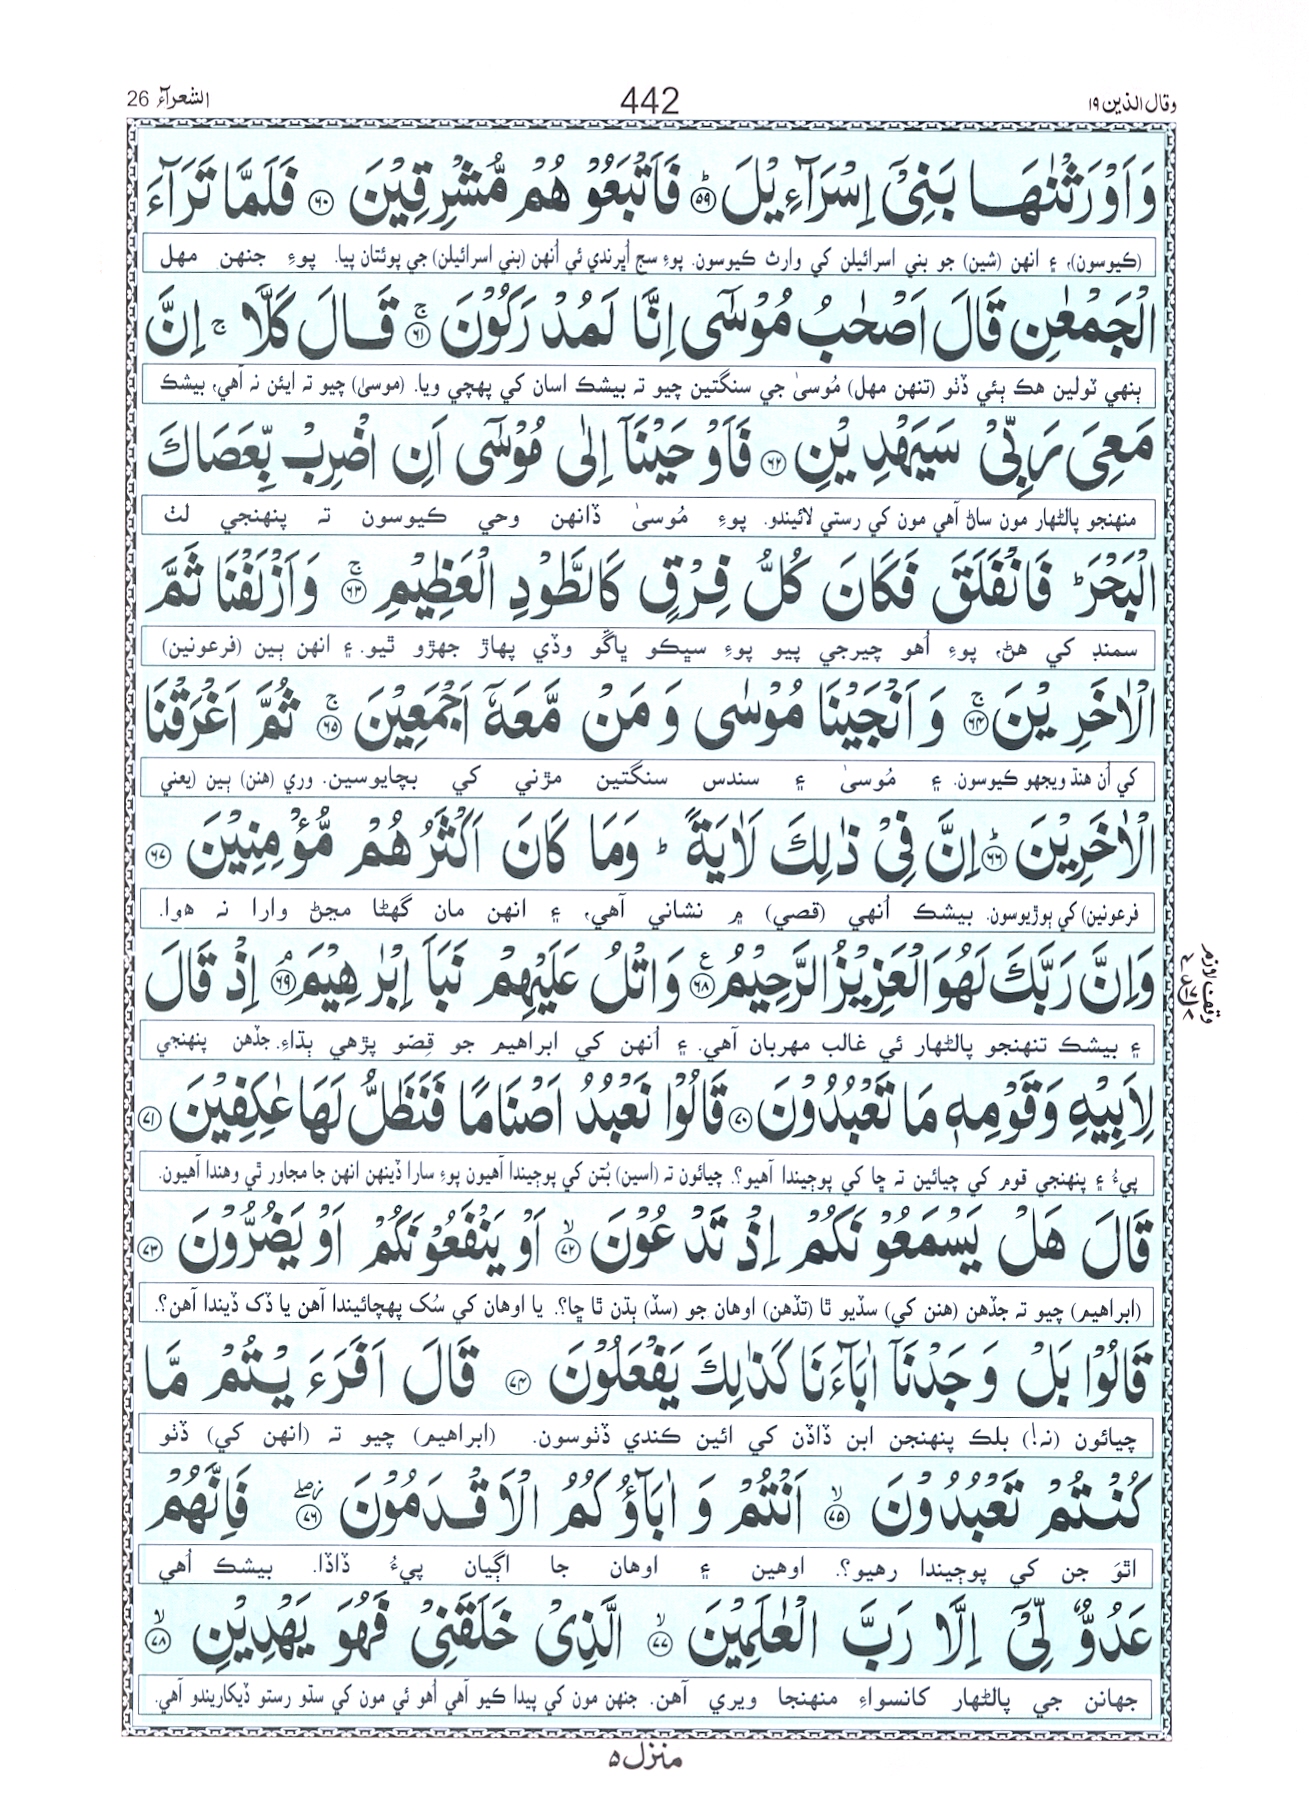 وقال الذين ١٩ 442 الشعرآء 26
وَاَوْرَثْنٰهَا بَنِيْٓ اِسْرَآءِيْلَ ؕ ﴿۵۹﴾ فَاَتْبَعُوْهُمْ مُّشْرِقِيْنَ ﴿۶۰﴾ فَلَمَّا تَرَآءَ
(ڪيوسون)، ۽ انهن (شين) جو بني اسرائيلن کي وارث ڪيوسون. پوءِ سج اُڀرندي ئي اُنهن (بني اسرائيلن) جي پوئتان پيا. پوءِ جنهن مهل
الْجَمْعٰنِ قَالَ اَصْحٰبُ مُوْسٰٓى اِنَّا لَمُدْرَكُوْنَ ۚ ﴿۶۱﴾ قَالَ كَلَّا ۚ اِنَّ
ٻنهي ٽولين هڪ ٻئي ڏٺو (تنهن مهل) مُوسىٰ جي سنگتين چيو ته بيشڪ اسان کي پهچي ويا. (موسىٰ) چيو ته ايئن نه آهي، بيشڪ
مَعِيَ رَبِّيْ سَيَهْدِيْنِ ﴿۶۲﴾ فَاَوْحَيْنَآ اِلٰى مُوْسٰٓى اَنِ اضْرِبْ بِّعَصَاكَ
منهنجو پالڻهار مون ساڻ آهي مون کي رستي لائيندو. پوءِ مُوسىٰ ڏانهن وحي ڪيوسون ته پنهنجي لٺ
الْبَحْرَ ؕ فَانْفَلَقَ فَكَانَ كُلُّ فِرْقٍ كَالطَّوْدِ الْعَظِيْمِ ۚ ﴿۶۳﴾ وَاَزْلَفْنَا ثَمَّ
سمنڊ کي هڻ، پوءِ اُهو چيرجي پيو پوءِ سڀڪو ڀاڱو وڏي پهاڙ جهڙو ٿيو. ۽ انهن ٻين (فرعونين)
الْاٰخَرِيْنَ ۚ ﴿۶۴﴾ وَاَنْجَيْنَا مُوْسٰى وَمَنْ مَّعَهٗٓ اَجْمَعِيْنَ ۚ ﴿۶۵﴾ ثُمَّ اَغْرَقْنَا
کي اُن هنڌ ويجهو ڪيوسون. ۽ مُوسىٰ ۽ سندس سنگتين مڙني کي بچايوسين. وري (هنن) ٻين (يعني
الْاٰخَرِيْنَ ؕ ﴿۶۶﴾ اِنَّ فِيْ ذٰلِكَ لَاٰيَةً ؕ وَمَا كَانَ اَكْثَرُهُمْ مُّؤْمِنِيْنَ ﴿۶۷﴾
فرعونين) کي ٻوڙيوسون. بيشڪ اُنهي (قصي) ۾ نشاني آهي، ۽ انهن مان گهڻا مڃڻ وارا نه هوا.
وَاِنَّ رَبَّكَ لَهُوَ الْعَزِيْزُ الرَّحِيْمُ ع ﴿۶۸﴾ وَاتْلُ عَلَيْهِمْ نَبَاَ اِبْرٰهِيْمَ ۘ ﴿۶۹﴾ اِذْ قَالَ
۽ بيشڪ تنهنجو پالڻهار ئي غالب مهربان آهي. ۽ اُنهن کي ابراهيم جو قِصّو پڙهي ٻڌاءِ. جڏهن پنهنجي
لِاَبِيْهِ وَقَوْمِهٖ مَا تَعْبُدُوْنَ ﴿۷۰﴾ قَالُوْا نَعْبُدُ اَصْنَامًا فَنَظَلُّ لَهَا عٰكِفِيْنَ ﴿۷۱﴾
پيءُ ۽ پنهنجي قوم کي چيائين ته ڇا کي پوڄيندا آهيو؟. چيائون ته (اسين) بُتن کي پوڄيندا آهيون پوءِ سارا ڏينهن انهن جا مجاور ٿي وهندا آهيون.
قَالَ هَلْ يَسْمَعُوْنَكُمْ اِذْ تَدْعُوْنَ ۙ ﴿۷۲﴾ اَوْ يَنْفَعُوْنَكُمْ اَوْ يَضُرُّوْنَ ﴿۷۳﴾
(ابراهيم) چيو ته جڏهن (هنن کي) سڏيو ٿا (تڏهن) اوهان جو (سڏ) ٻڌن ٿا ڇا؟. يا اوهان کي سُک پهچائيندا آهن يا ڏک ڏيندا آهن؟.
قَالُوْا بَلْ وَجَدْنَآ اٰبَآءَنَا كَذٰلِكَ يَفْعَلُوْنَ ﴿۷۴﴾ قَالَ اَفَرَءَيْتُمْ مَّا
چيائون (نه!) بلڪ پنهنجن ابن ڏاڏن کي ائين ڪندي ڏٺوسون. (ابراهيم) چيو ته (انهن کي) ڏٺو
كُنْتُمْ تَعْبُدُوْنَ ۙ ﴿۷۵﴾ اَنْتُمْ وَاٰبَآؤُكُمُ الْاَقْدَمُوْنَ ۖ ﴿۷۶﴾ فَاِنَّهُمْ
اٿوَ جن کي پوڄيندا رهيو؟. اوهين ۽ اوهان جا اڳيان پيءُ ڏاڏا. بيشڪ اُهي
عَدُوٌّ لِّيْٓ اِلَّا رَبَّ الْعٰلَمِيْنَ ۙ ﴿۷۷﴾ الَّذِيْ خَلَقَنِيْ فَهُوَ يَهْدِيْنِ ۙ ﴿۷۸﴾
جهانن جي پالڻهار کانسواءِ منهنجا ويري آهن. جنهن مون کي پيدا ڪيو آهي اُهو ئي مون کي سڌو رستو ڏيکاريندو آهي.
وقف لازم
منزل ۵